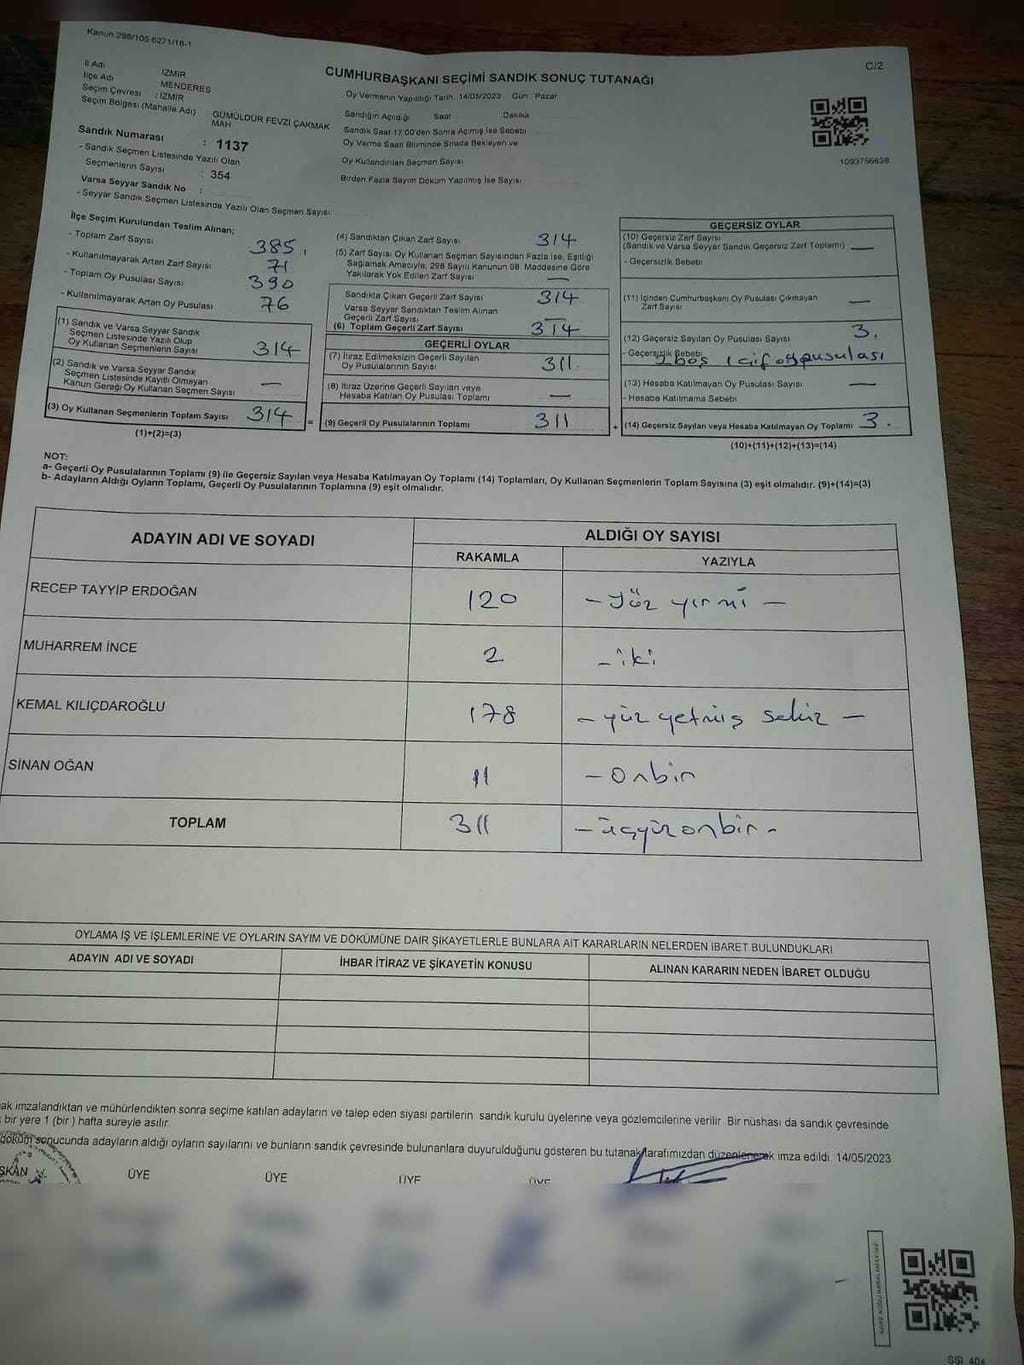 Kanun 298/105 6271/18-1
C/2
CUMHURBAŞKANI SEÇİMİ SANDIK SONUÇ TUTANAĞI
İl Adı : İZMİR
İlçe Adı : MENDERES
Seçim Çevresi : İZMİR
Seçim Bölgesi (Mahalle Adı) : GÜMÜLDÜR FEVZİ ÇAKMAK MAH
Sandık Numarası : 1137
- Sandık Seçmen Listesinde Yazılı Olan
Seçmenlerin Sayısı : 354
Varsa Seyyar Sandık No :
- Seyyar Sandık Seçmen Listesinde Yazılı Olan Seçmen Sayısı
Oy Vermenin Yapıldığı Tarih 14/05/2023 Gün : Pazar
Sandığın Açıldığı Saat Dakika
Sandık Saat 17:00'den Sonra Açmış İse Sebebi
Oy Verme Saati Bitiminde Sırada Bekleyen ve
Oy Kullandırılan Seçmen Sayısı
Birden Fazla Sayım Döküm Yapılmış İse Sayısı
1093756638
İlçe Seçim Kurulundan Teslim Alınan;
- Toplam Zarf Sayısı 385
- Kullanılmayarak Artan Zarf Sayısı 71
- Toplam Oy Pusulası Sayısı 390
- Kullanılmayarak Artan Oy Pusulası 76
(1) Sandık ve Varsa Seyyar Sandık
Seçmen Listesinde Yazılı Olup
Oy Kullanan Seçmenlerin Sayısı 314
(2) Sandık ve Varsa Seyyar Sandık
Seçmen Listesinde Kayıtlı Olmayan
Kanun Gereği Oy Kullanan Seçmen Sayısı —
(3) Oy Kullanan Seçmenlerin Toplam Sayısı 314 =
(1)+(2)=(3)
(4) Sandıktan Çıkan Zarf Sayısı 314
(5) Zarf Sayısı Oy Kullanan Seçmen Sayısından Fazla İse, Eşitliği
Sağlamak Amacıyla, 298 Sayılı Kanunun 98. Maddesine Göre
Yakılarak Yok Edilen Zarf Sayısı —
Sandıkta Çıkan Geçerli Zarf Sayısı 314
Varsa Seyyar Sandıktan Teslim Alınan
Geçerli Zarf Sayısı —
(6) Toplam Geçerli Zarf Sayısı 314
GEÇERLİ OYLAR
(7) İtiraz Edilmeksizin Geçerli Sayılan
Oy Pusulalarının Sayısı 311
(8) İtiraz Üzerine Geçerli Sayılan veya
Hesaba Katılan Oy Pusulası Toplamı —
(9) Geçerli Oy Pusulalarının Toplamı 311 +
GEÇERSİZ OYLAR
(10) Geçersiz Zarf Sayısı
(Sandık ve Varsa Seyyar Sandık Geçersiz Zarf Toplamı) —
- Geçersizlik Sebebi
(11) İçinden Cumhurbaşkanı Oy Pusulası Çıkmayan
Zarf Sayısı —
(12) Geçersiz Sayılan Oy Pusulası Sayısı 3.
- Geçersizlik Sebebi 2 boş 1 çif oy pusulası
(13) Hesaba Katılmayan Oy Pusulası Sayısı —
- Hesaba Katılmama Sebebi
(14) Geçersiz Sayılan veya Hesaba Katılmayan Oy Toplamı 3.
(10)+(11)+(12)+(13)=(14)
NOT:
a- Geçerli Oy Pusulalarının Toplamı (9) ile Geçersiz Sayılan veya Hesaba Katılmayan Oy Toplamı (14) Toplamları, Oy Kullanan Seçmenlerin Toplam Sayısına (3) eşit olmalıdır. (9)+(14)=(3)
b- Adayların Aldığı Oyların Toplamı, Geçerli Oy Pusulalarının Toplamına (9) eşit olmalıdır.
ADAYIN ADI VE SOYADI ALDIĞI OY SAYISI
RAKAMLA YAZIYLA
RECEP TAYYİP ERDOĞAN 120 - yüz yirmi -
MUHARREM İNCE 2 - iki
KEMAL KILIÇDAROĞLU 178 - yüz yetmiş sekiz -
SİNAN OĞAN 11 - onbir
TOPLAM 311 - üçyüzonbir -
OYLAMA İŞ VE İŞLEMLERİNE VE OYLARIN SAYIM VE DÖKÜMÜNE DAİR ŞİKAYETLERLE BUNLARA AİT KARARLARIN NELERDEN İBARET BULUNDUKLARI
ADAYIN ADI VE SOYADI İHBAR İTİRAZ VE ŞİKAYETİN KONUSU ALINAN KARARIN NEDEN İBARET OLDUĞU
ak imzalandıktan ve mühürlendikten sonra seçime katılan adayların ve talep eden siyasi partilerin sandık kurulu üyelerine veya gözlemcilerine verilir. Bir nüshası da sandık çevresinde
bir yere 1 (bir) hafta süreyle asılır
döküm sonucunda adayların aldığı oyların sayılarını ve bunların sandık çevresinde bulunanlara duyurulduğunu gösteren bu tutanak tarafımızdan düzenlenerek imza edildi. 14/05/2023
ŞKAN ÜYE ÜYE ÜYE ÜYE
SSI 404